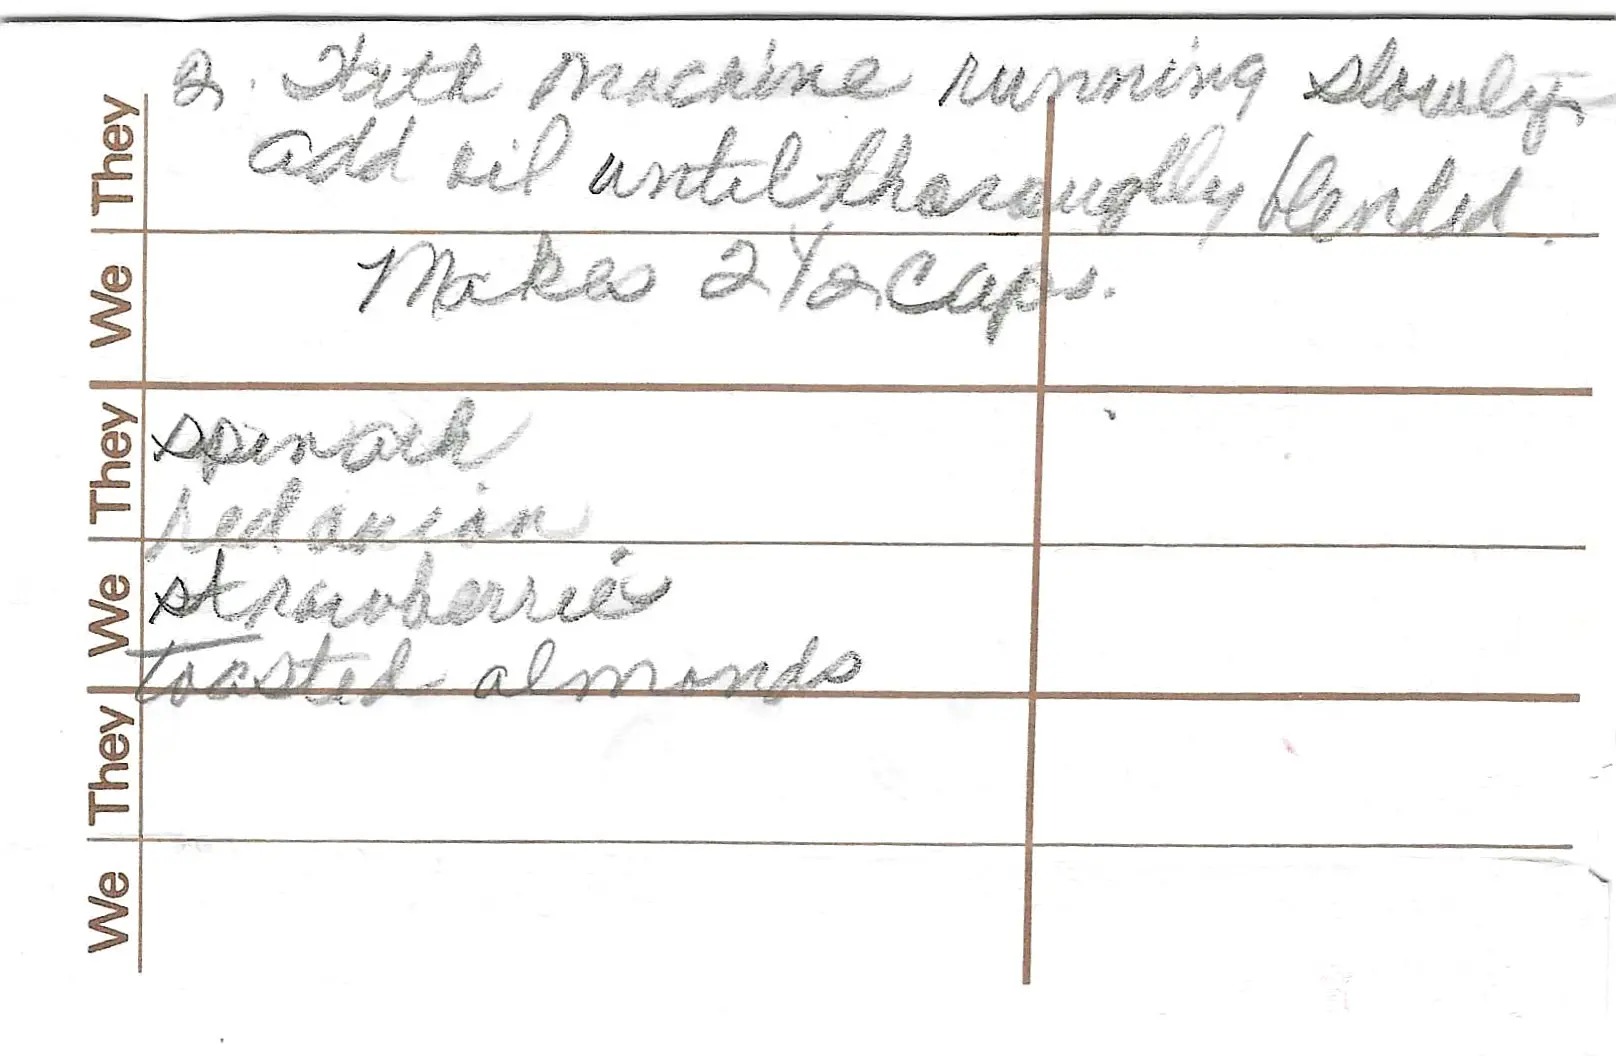 2. With machine running slowly
add oil until thoroughly blended.
Makes 2 1/2 cups.
They
We
They
spinach
red onion
We
strawberries
toasted almonds
They
We